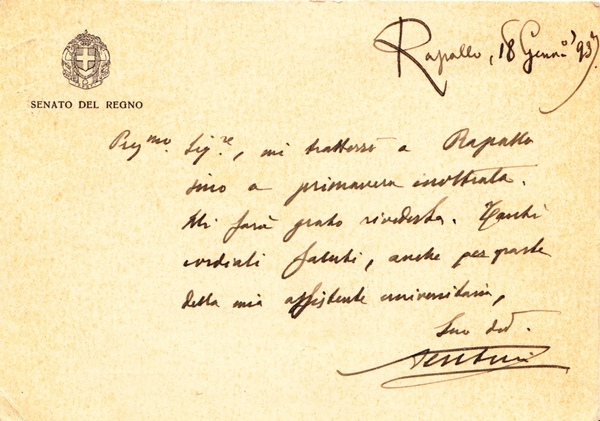 SENATO DEL REGNO
Rapallo, 18 Genn° 93
Pregmo. Sig.re, mi tratterrò a Rapallo
sino a primavera inoltrata.
Mi sarà grato rivederla. Tanti
cordiali saluti, anche per parte
della mia assistente universitaria,
Suo dev.